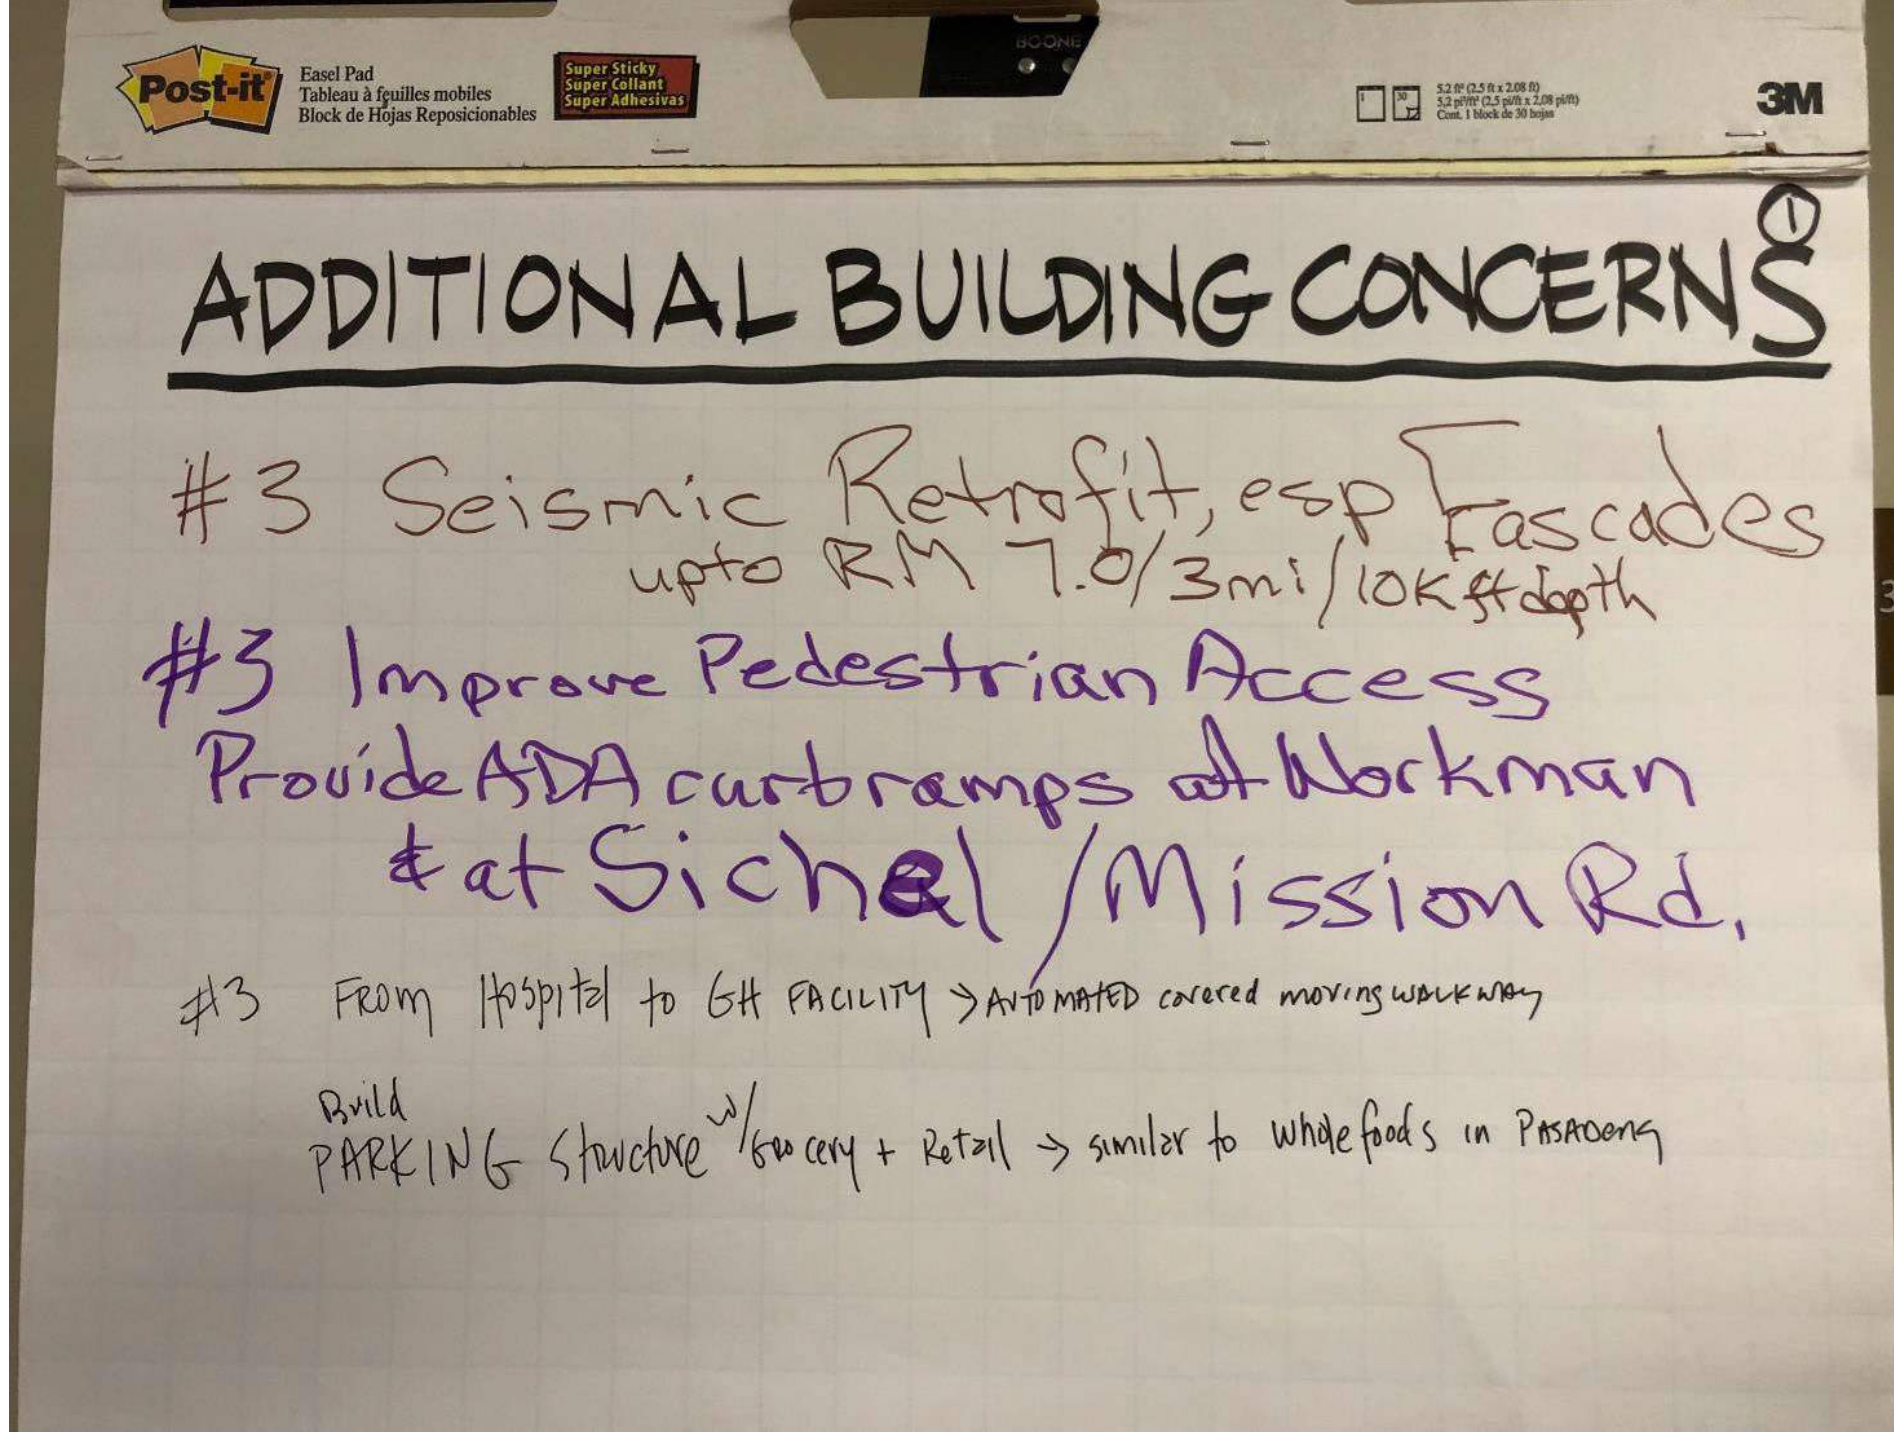 BOONE
Post-it
Easel Pad
Tableau à feuilles mobiles
Block de Hojas Reposicionables
Super Sticky
Super Collant
Super Adhesivas
1
30
5.2 ft² (2.5 ft x 2.08 ft)
5,2 pi²/ft² (2,5 pi/ft x 2,08 pi/ft)
Cont. 1 block de 30 hojas
3M
1
ADDITIONAL BUILDING CONCERNS
#3 Seismic Retrofit, esp Fascades
upto RM 7.0/3mi/10K ft depth
#3 Improve Pedestrian Access
Provide ADA curb ramps at Workman
& at Sichel /Mission Rd.
#3 FROM Hospital to GH FACILITY → AUTOMATED covered moving WALKWAY
Build
PARKING Structure w/Grocery + Retail → similar to Whole foods in PASADENA
3